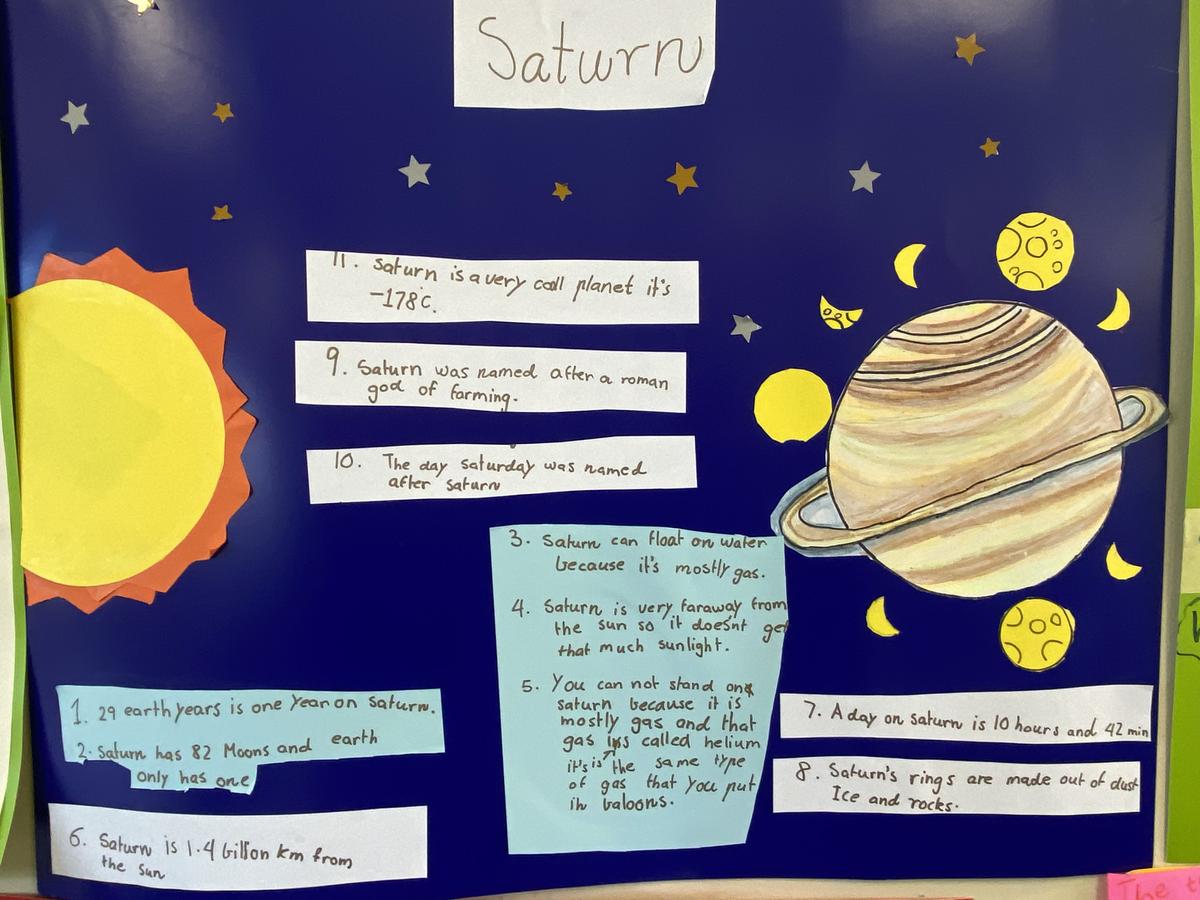 Saturn
11. Saturn is a very coll planet it's
-178°c.
9. Saturn was named after a roman
god of farming.
10. The day saturday was named
after saturn
3. Saturn can float on water
because it's mostly gas.
4. Saturn is very faraway from
the sun so it doesnt get
that much sunlight.
5. You can not stand on
saturn because it is
mostly gas and that
gas is called helium
it's the same type
of gas that you put
in baloons.
1. 29 earth years is one year on Saturn.
2. Saturn has 82 Moons and earth
only has one
6. Saturn is 1.4 billion km from
the sun
7. A day on saturn is 10 hours and 42 min
8. Saturn's rings are made out of dust
Ice and rocks.
The